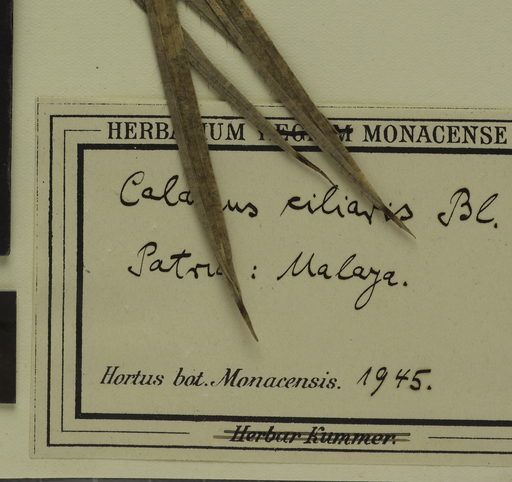 HERBARIUM REGIUM MONACENSE
Calamus ciliaris Bl.
Patria: Malaya.
Hortus bot. Monacensis. 1945.
Herbar Kummer.